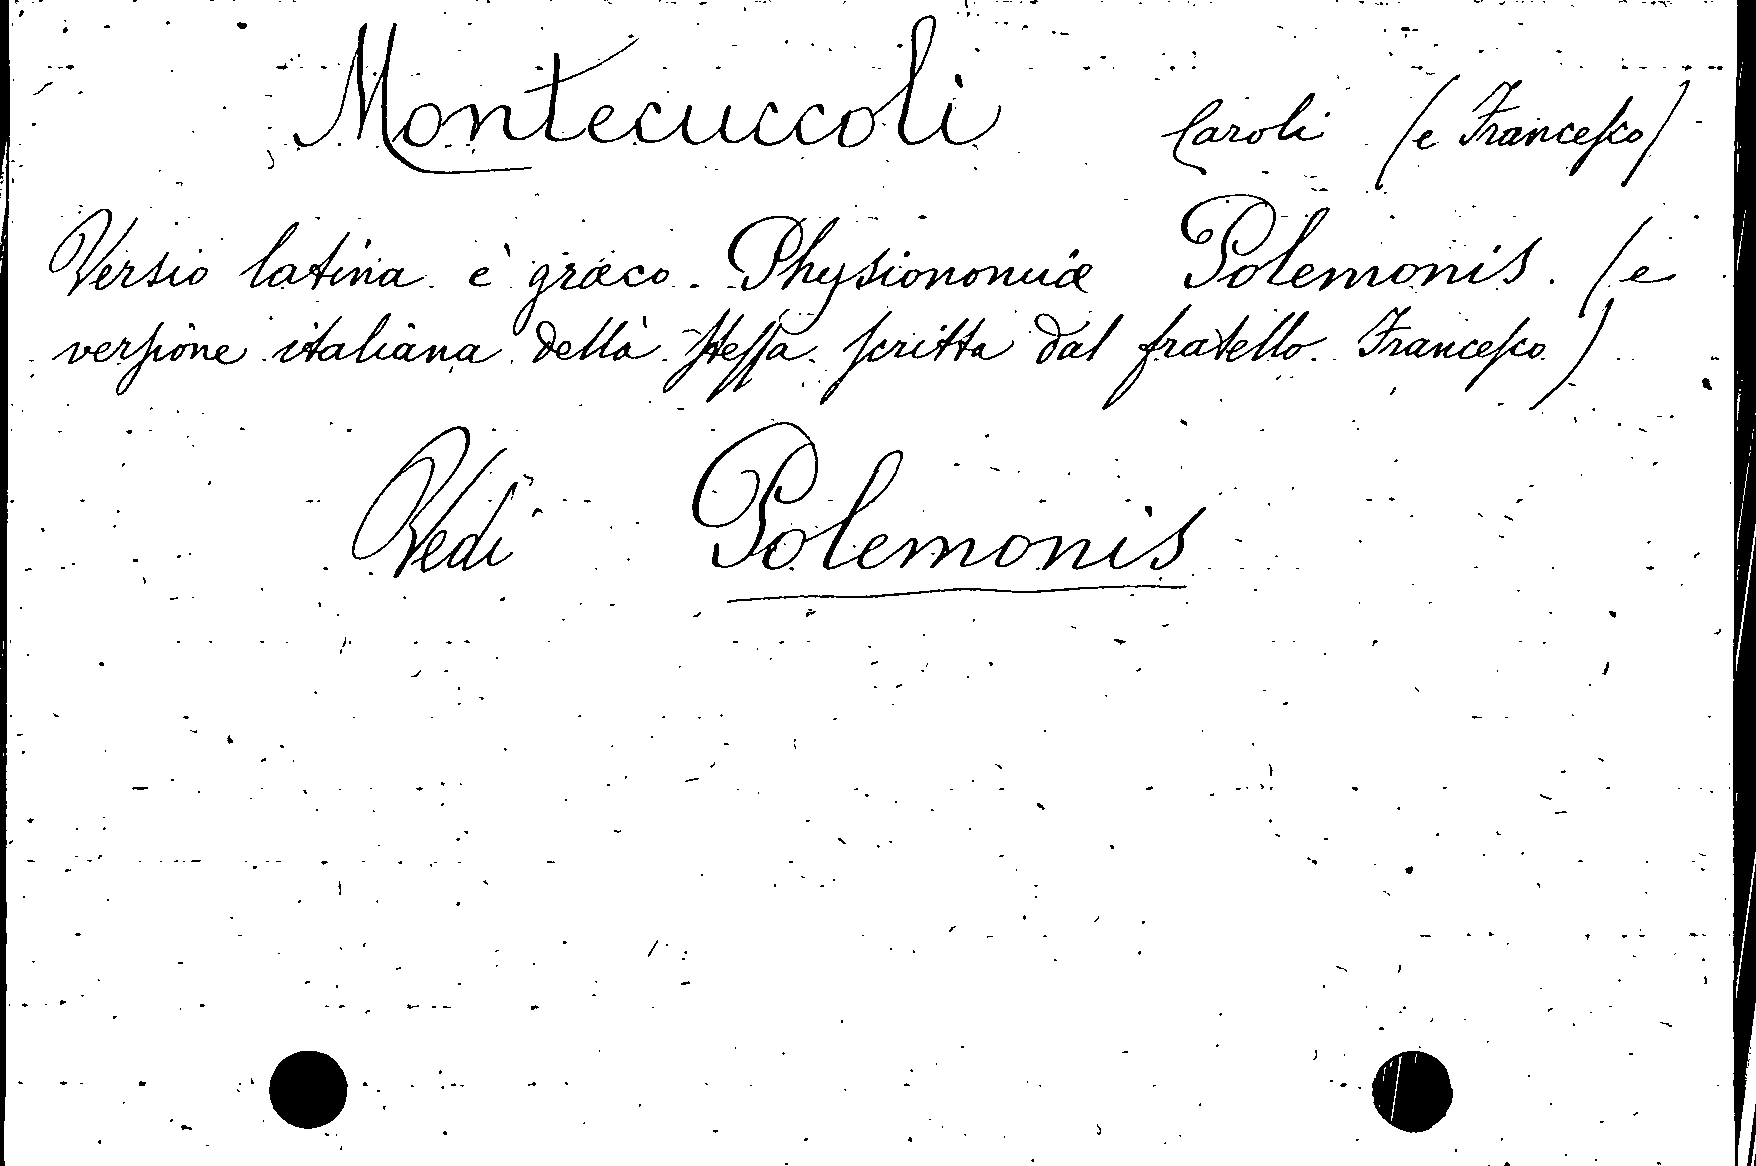 Montecuccoli Caroli (e Francesco)
Versio latina è græco. Physionomiæ Polemonis. (e
versione italiana della stessa scritta dal fratello Francesco)
Vedi Polemonis